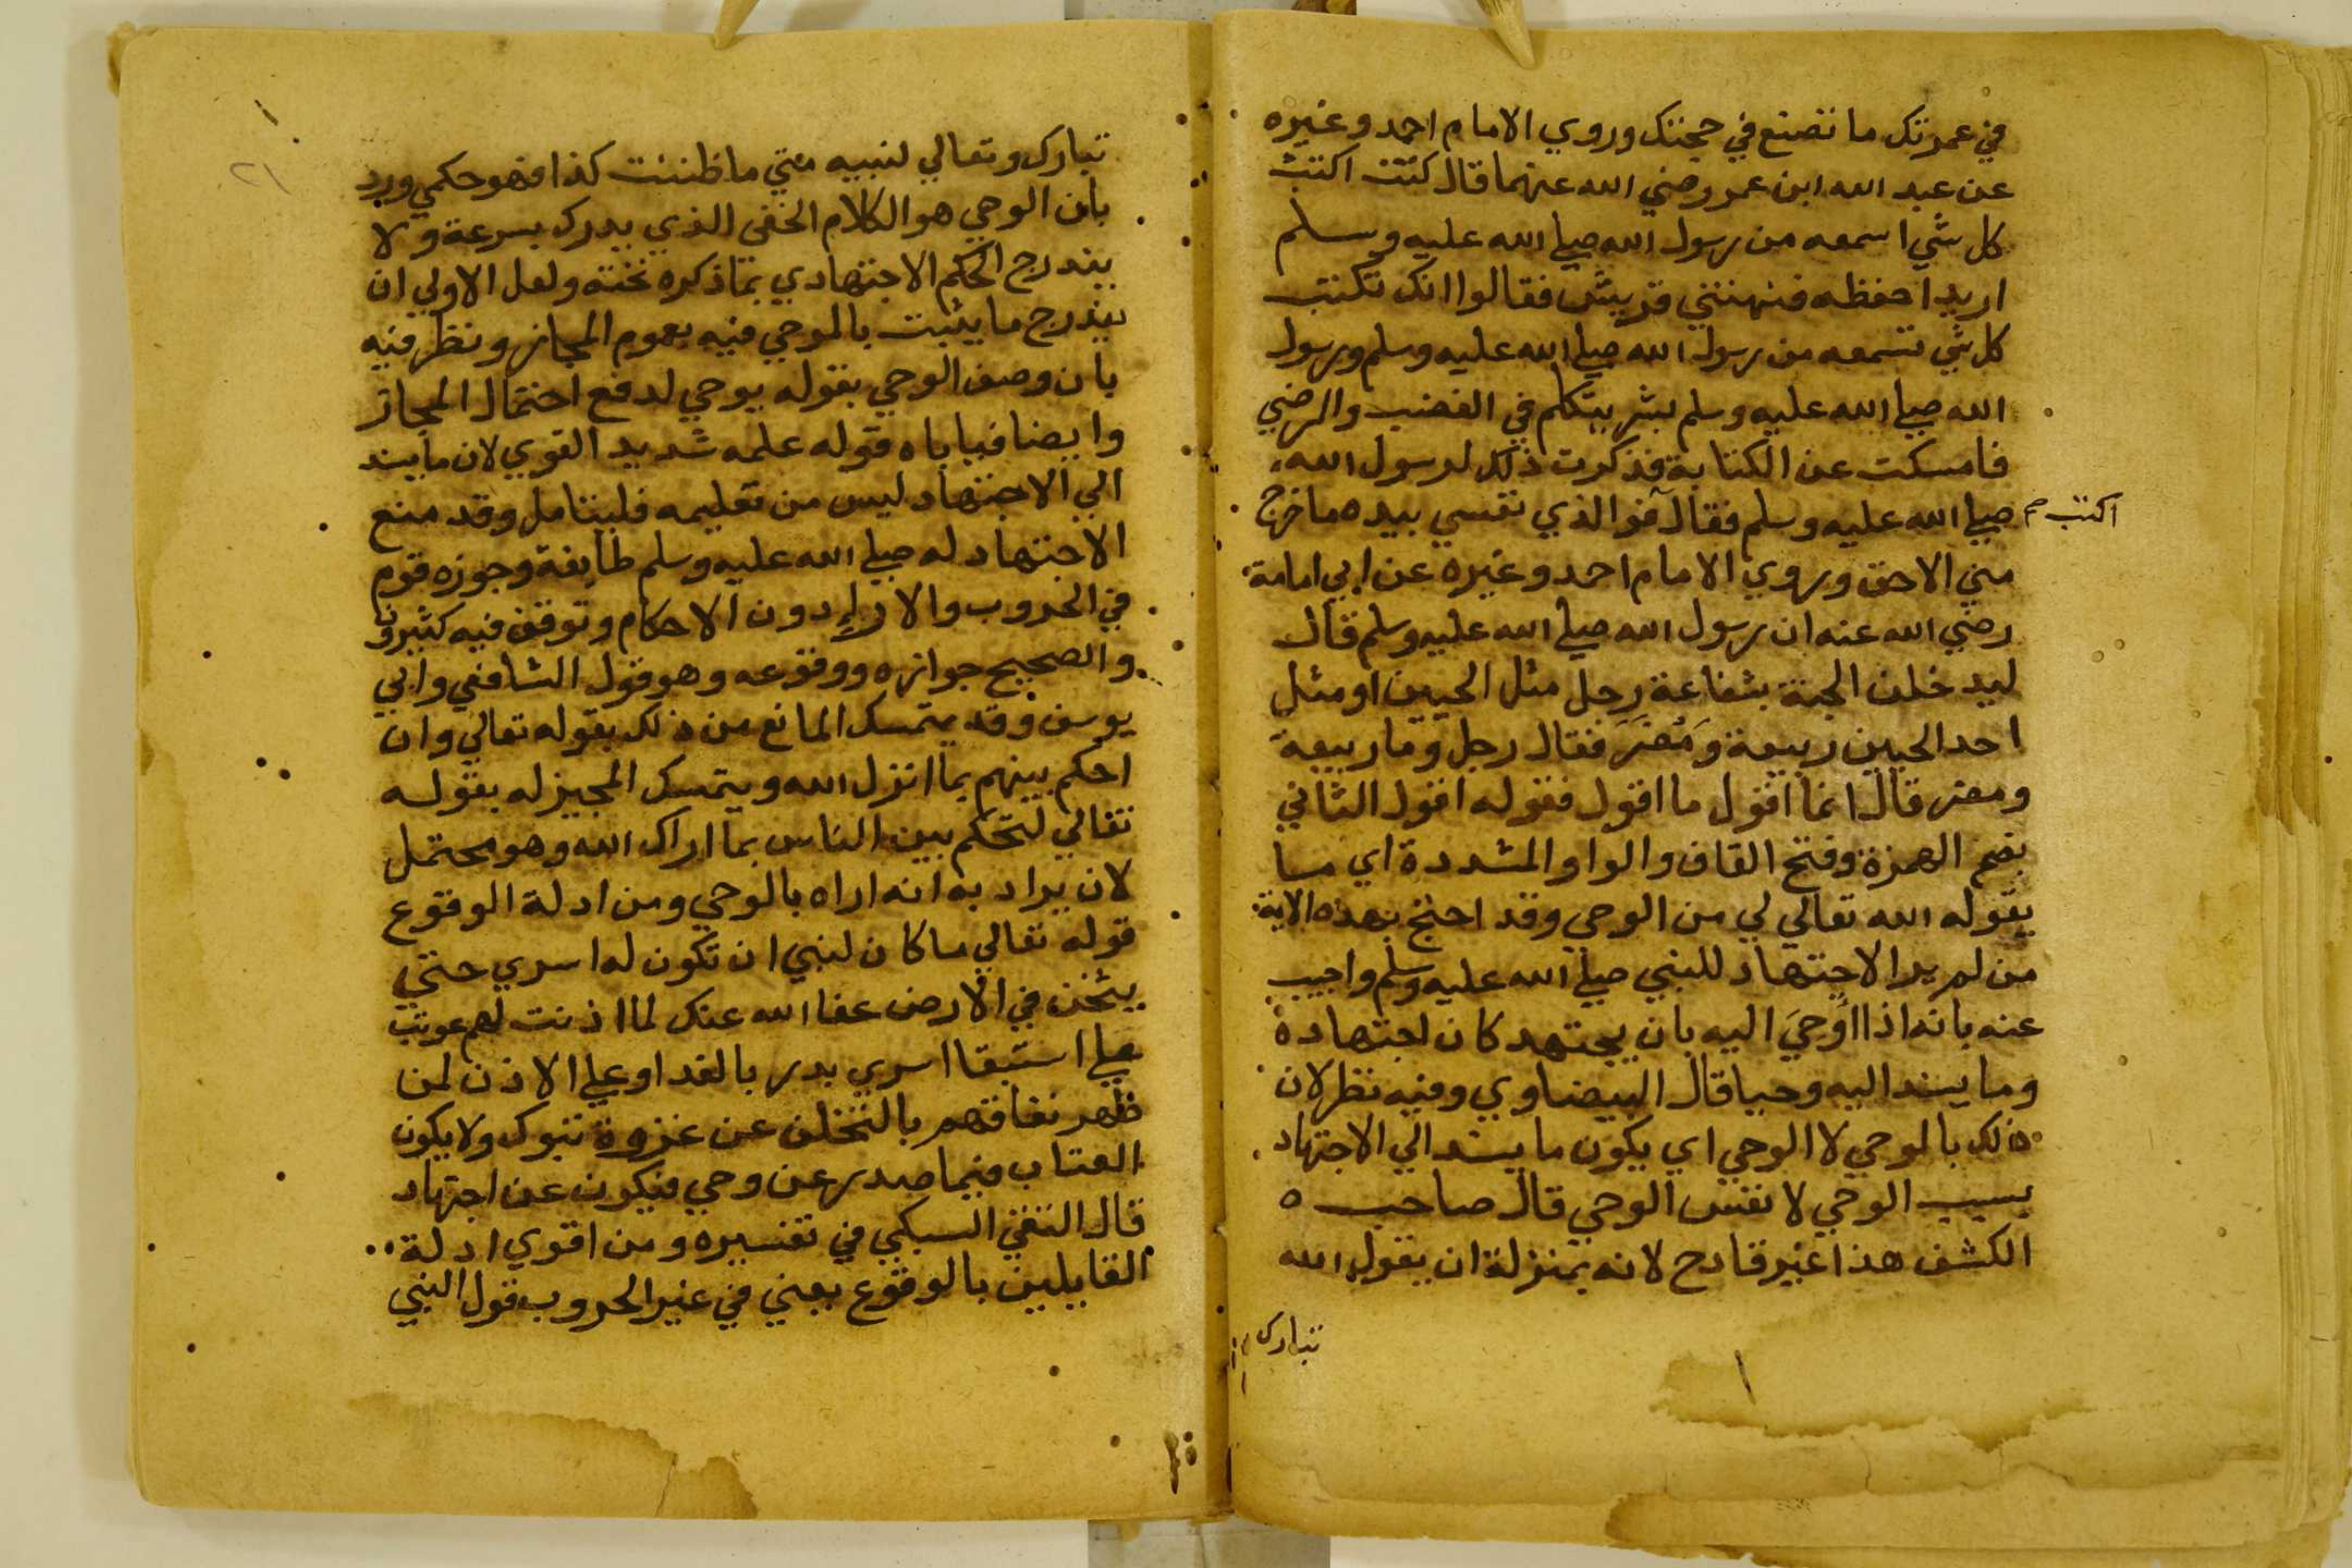 في عمرتك ما تصنع في حجتك وروي الامام احمد وغيره
عن عبد الله ابن عمر رضي الله عنهما قال كنت اكتب
كل شي اسمعه من رسول الله صلي الله عليه وسلم
اريد احفظه فنهتني قريش فقالوا انك تكتب
كل شي تسمعه من رسول الله صلي الله عليه وسلم ورسول
الله صلي الله عليه وسلم بشر يتكلم في الغضب والرضي
فامسكت عن الكتابة فذكرت ذلك لرسول الله
صلي الله عليه وسلم فقال فو الذي نفسي بيده ما خرج
اكتب صح
مني الا حق وروي الامام احمد وغيره عن ابي امامة
رضي الله عنه ان رسول الله صلي الله عليه وسلم قال
ليدخلن الجنة بشفاعة رجل مثل الحيين او مثل
احد الحيين ربيعة وَمُضَرَ فقال رجل وما ربيعة
ومضر قال انما اقول ما اقول فقوله اقول الثاني
بضم الهمزة وفتح القاف والواو المشددة اي مسا
يقوله الله تعالي لي من الوحي وقد احتج بهذه الاية
من لم ير الاجتهاد للنبي صلي الله عليه وسلم واجيب
عنه بانه اذا اُوحيَ اليه بان يجتهد كان اجتهاده
وما يسند اليه وحيا قال البيضاوي وفيه نظر لان
ذلك بالوحي لا الوحي اي يكون ما يسند الي الاجتهاد
بسبب الوحي لا نفس الوحي قال صاحب ه
الكشف هذا غير قادح لانه بمنزلة ان يقول الله
تبارك
٢١
تبارك وتعالي لنبيه متي ما ظننت كذا فهو حكمي ورد
بان الوحي هو الكلام الخفي الذي يدرك بسرعة ولا
يندرج الحكم الاجتهادي بما ذكره تحته ولعل الاولي ان
يندرج ما يثبت بالوحي فيه بعموم المجاز ونظر فيه
بان وصف الوحي بقوله يوحي لدفع احتمال المجاز
وايضا فيا باه قوله علمه شديد القوي لان ما يسند
الي الاجتهاد ليس من تعليمه فليتامل وقد منع
الاجتهاد له صلي الله عليه وسلم طايفة وجوزه قوم
في الحروب والاراء دون الاحكام وتوقف فيه كثيرون
والصحيح جوازه ووقوعه وهو قول الشافعي وابي
يوسف وقد يتمسك المانع من ذلك بقوله تعالي وان
احكم بينهم بما انزل الله ويتمسك المجيز له بقوله
تعالي لتحكم بين الناس بما اراك الله وهو محتمل
لان يراد به انه اراه بالوحي ومن ادلة الوقوع
قوله تعالي ما كان لنبي ان تكون له اسري حتي
يثخن في الارض عفا الله عنك لما اذنت لهم عوتب
علي استبقا اسري بدر بالفدا وعلي الاذن لمن
ظهر نفاقهم بالتخلف عن غزوة تبوك ولا يكون
العتاب فيما صدر عن وحي فيكون عن اجتهاد
قال التقي السبكي في تفسيره ومن اقوي ادلة
القايلين بالوقوع يعني في غير الحروب قول النبي